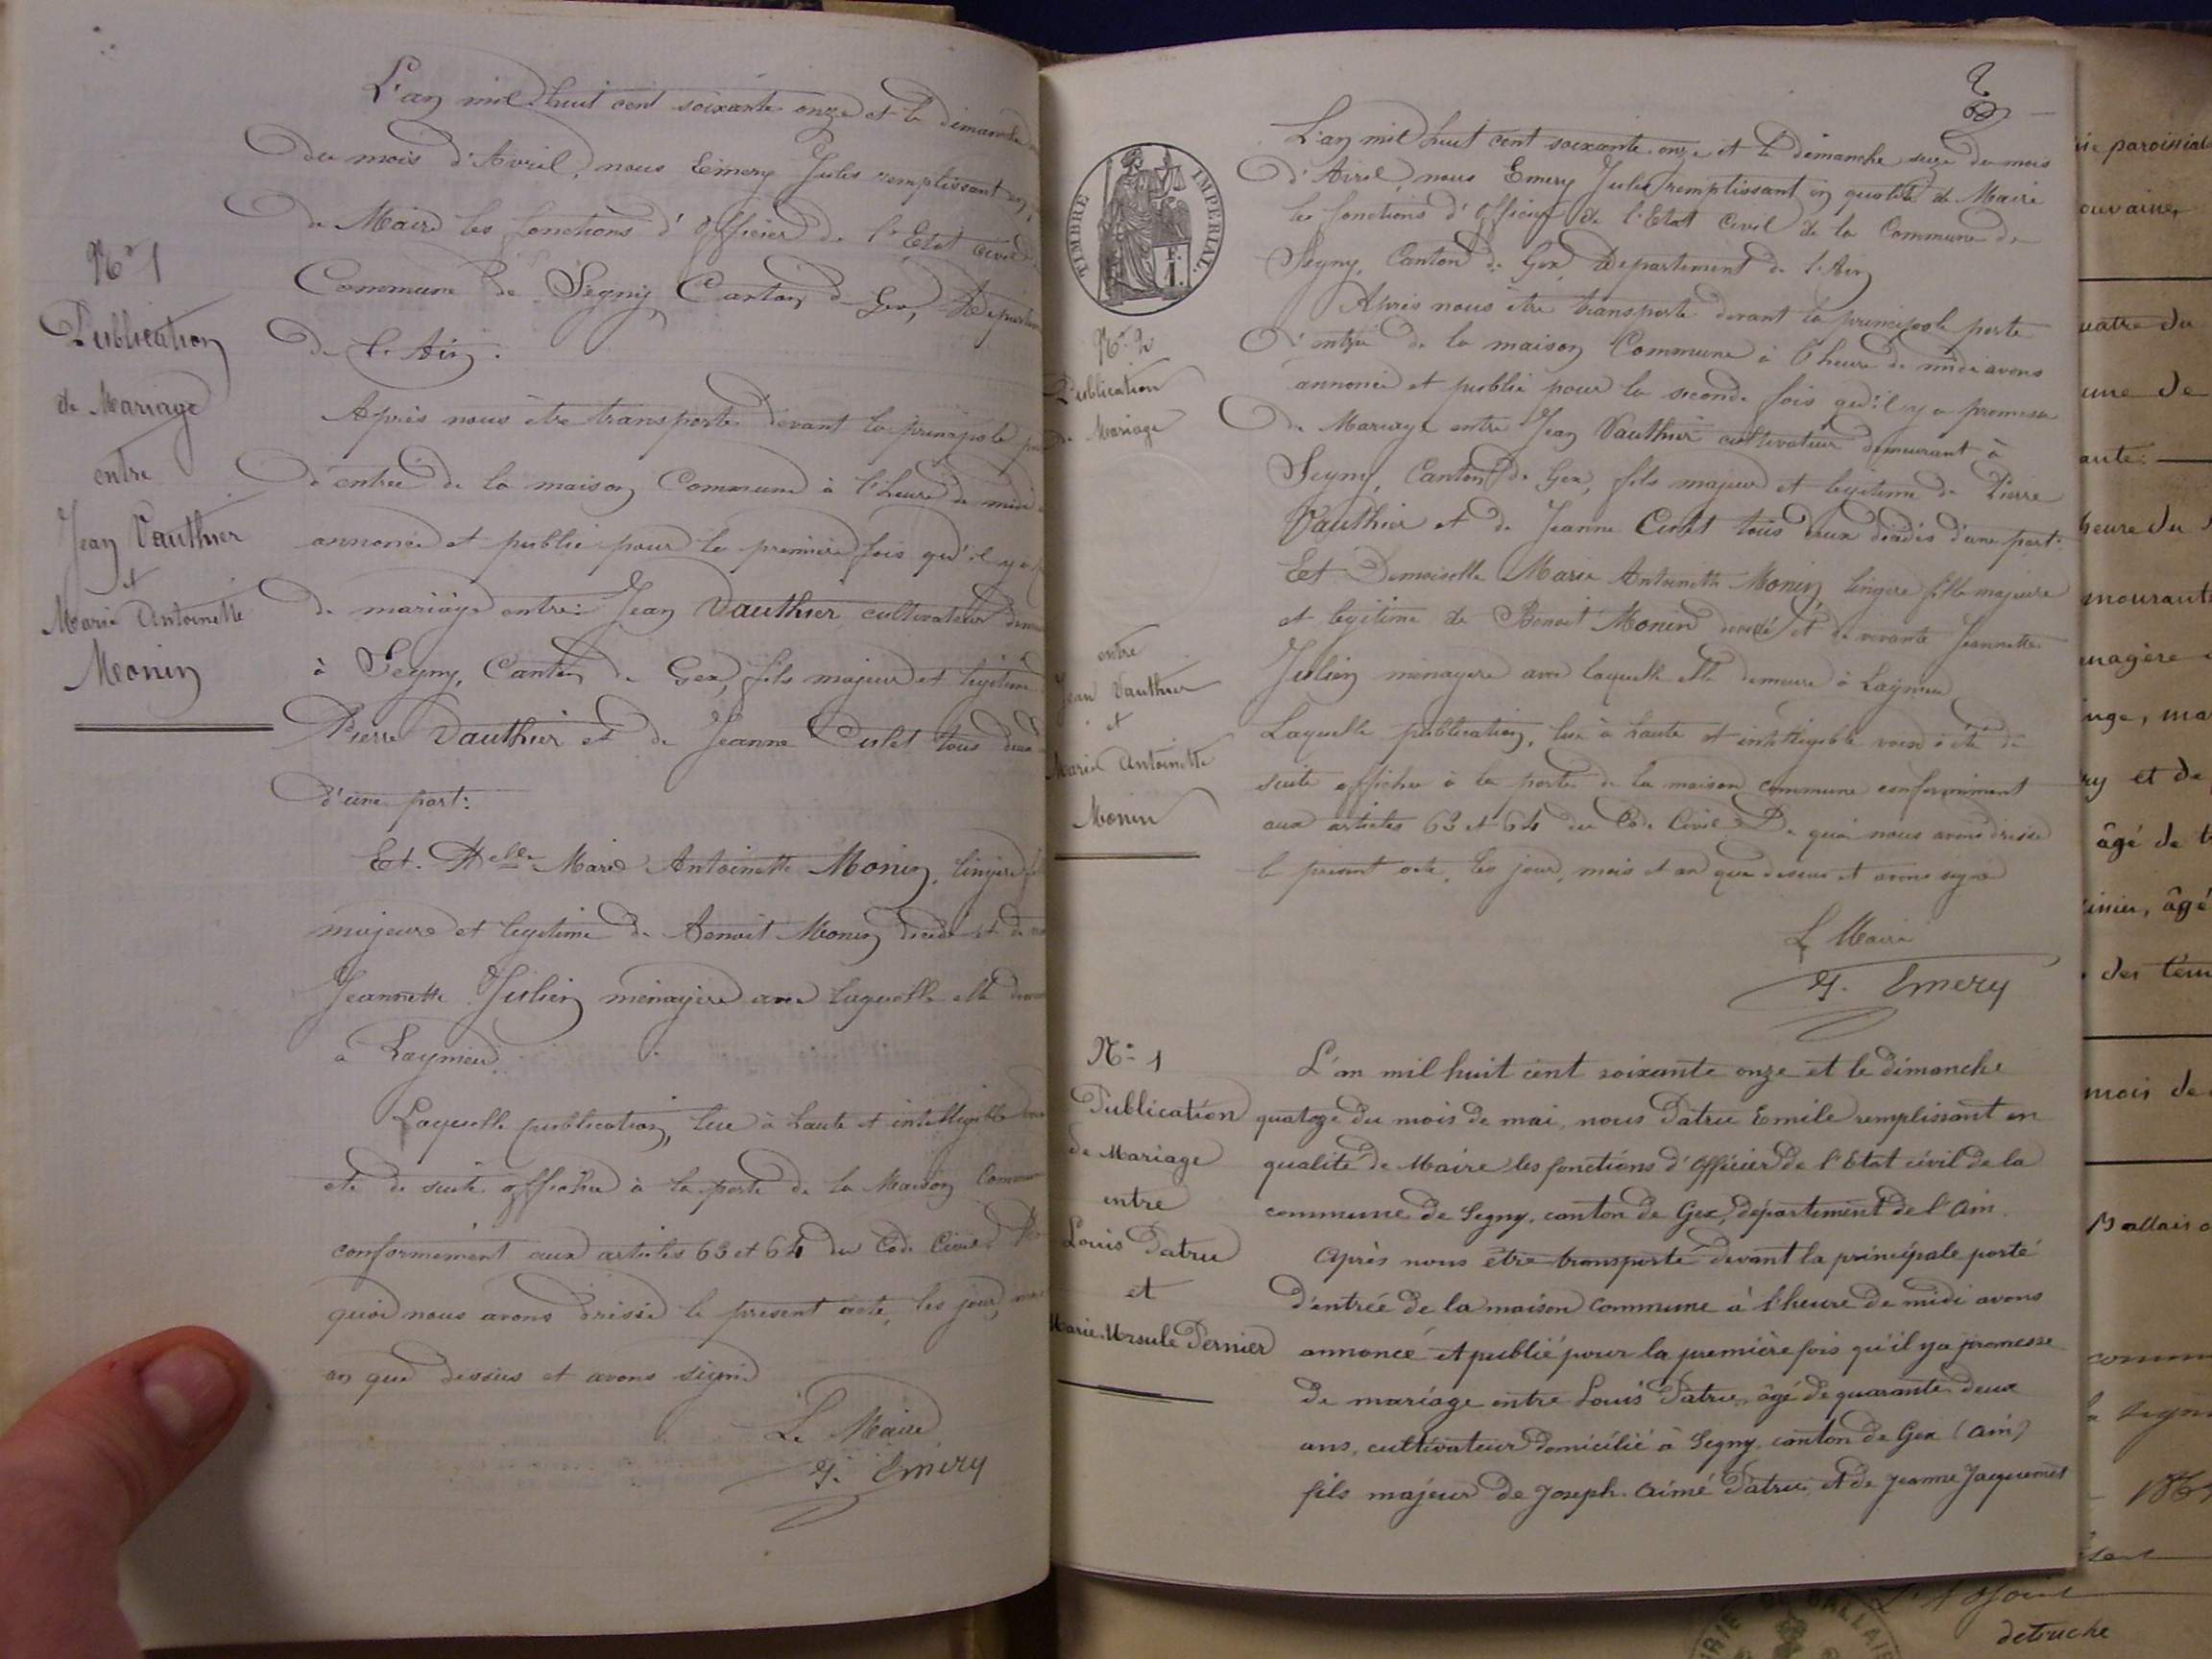 L'an mil huit cent soixante onze et le dimanche
du mois d'Avril, nous Emery Jules remplissant en
de Maire les fonctions d'Officier de l'Etat Civil
Commune de Segny, Canton de Gex, Départem
de l'Ain.
Après nous être transporté devant la principale
d'entrée de la maison Commune à l'heure de midi
annoncé et publié pour la première fois qu'il y a
de mariage entre: Jean Vauthier cultivateur
à Segny, Canton de Gex, fils majeur et légitime
Pierre Vauthier et de Jeanne Culet tous deux
d'une part:
Et Delle Marie Antoinette Monin, lingère
majeure et legitime de Benoit Monin décédé et de
Jeannette Julien ménagère avec laquelle elle
à Lagnieu.
Laquelle publication, lue à haute et intelligible
été de suite affichée à la porte de la Maison Commune
conformément aux articles 63 et 64 du Code Civil. De
quoi nous avons dressé le présent acte, les jour,
an que dessus et avons signé
Le Maire
J. Emery
No 1
Publication
de Mariage
entre
Jean Vauthier
et
Marie Antoinette
Monin
TIMBRE IMPERIAL
L'an mil huit cent soixante onze et le dimanche seize du mois
d'Avril, nous Emery Jules remplissant en qualité de Maire
les fonctions d'Officier de l'Etat Civil de la Commune de
Segny, Canton de Gex, Département de l'Ain
Après nous être transporté devant la principale porte
d'entrée de la maison Commune à l'heure de midi avons
annoncé et publié pour la seconde fois qu'il y a promesse
de Mariage entre Jean Vauthier cultivateur demeurant à
Segny, Canton de Gex, fils majeur et legitime de Pierre
Vauthier et de Jeanne Culet tous deux décédés d'une part:
Et Demoiselle Marie Antoinette Monin, lingère fille majeure
et legitime de Benoit Monin décédé et de vivante Jeannette
Julien ménagère avec laquelle elle demeure à Lagnieu
Laquelle publication, lue à haute et intelligible voix a été de
suite affichée à la porte de la maison commune conformément
aux articles 63 et 64 du Code Civil. De quoi nous avons dressé
le présent acte, les jour, mois et an que dessus et avons signé
Le Maire
J. Emery
No 2
Publication
de Mariage
entre
Jean Vauthier
et
Marie Antoinette
Monin
No 1
Publication
de Mariage
entre
Louis Patru
et
Marie Ursule Pernier
L'an mil huit cent soixante onze et le dimanche
quatoze du mois de mai, nous Patru Emile remplissant en
qualité de Maire les fonctions d'Officier de l'Etat civil de la
commune de Segny, canton de Gex, département de l'Ain.
Après nous être transporté devant la principale porte
d'entrée de la maison commune à l'heure de midi avons
annoncé et publié pour la première fois qu'il y a promesse
de mariage entre Louis Patru, âgé de quarante deux
ans, cultivateur domicilié à Segny, canton de Gex (Ain)
fils majeur de Joseph Aimé Patru et de Jeanne Jacquemet
une de
heure du
et de
âgé de
âgé
mois de
L'Adjoint
detruche